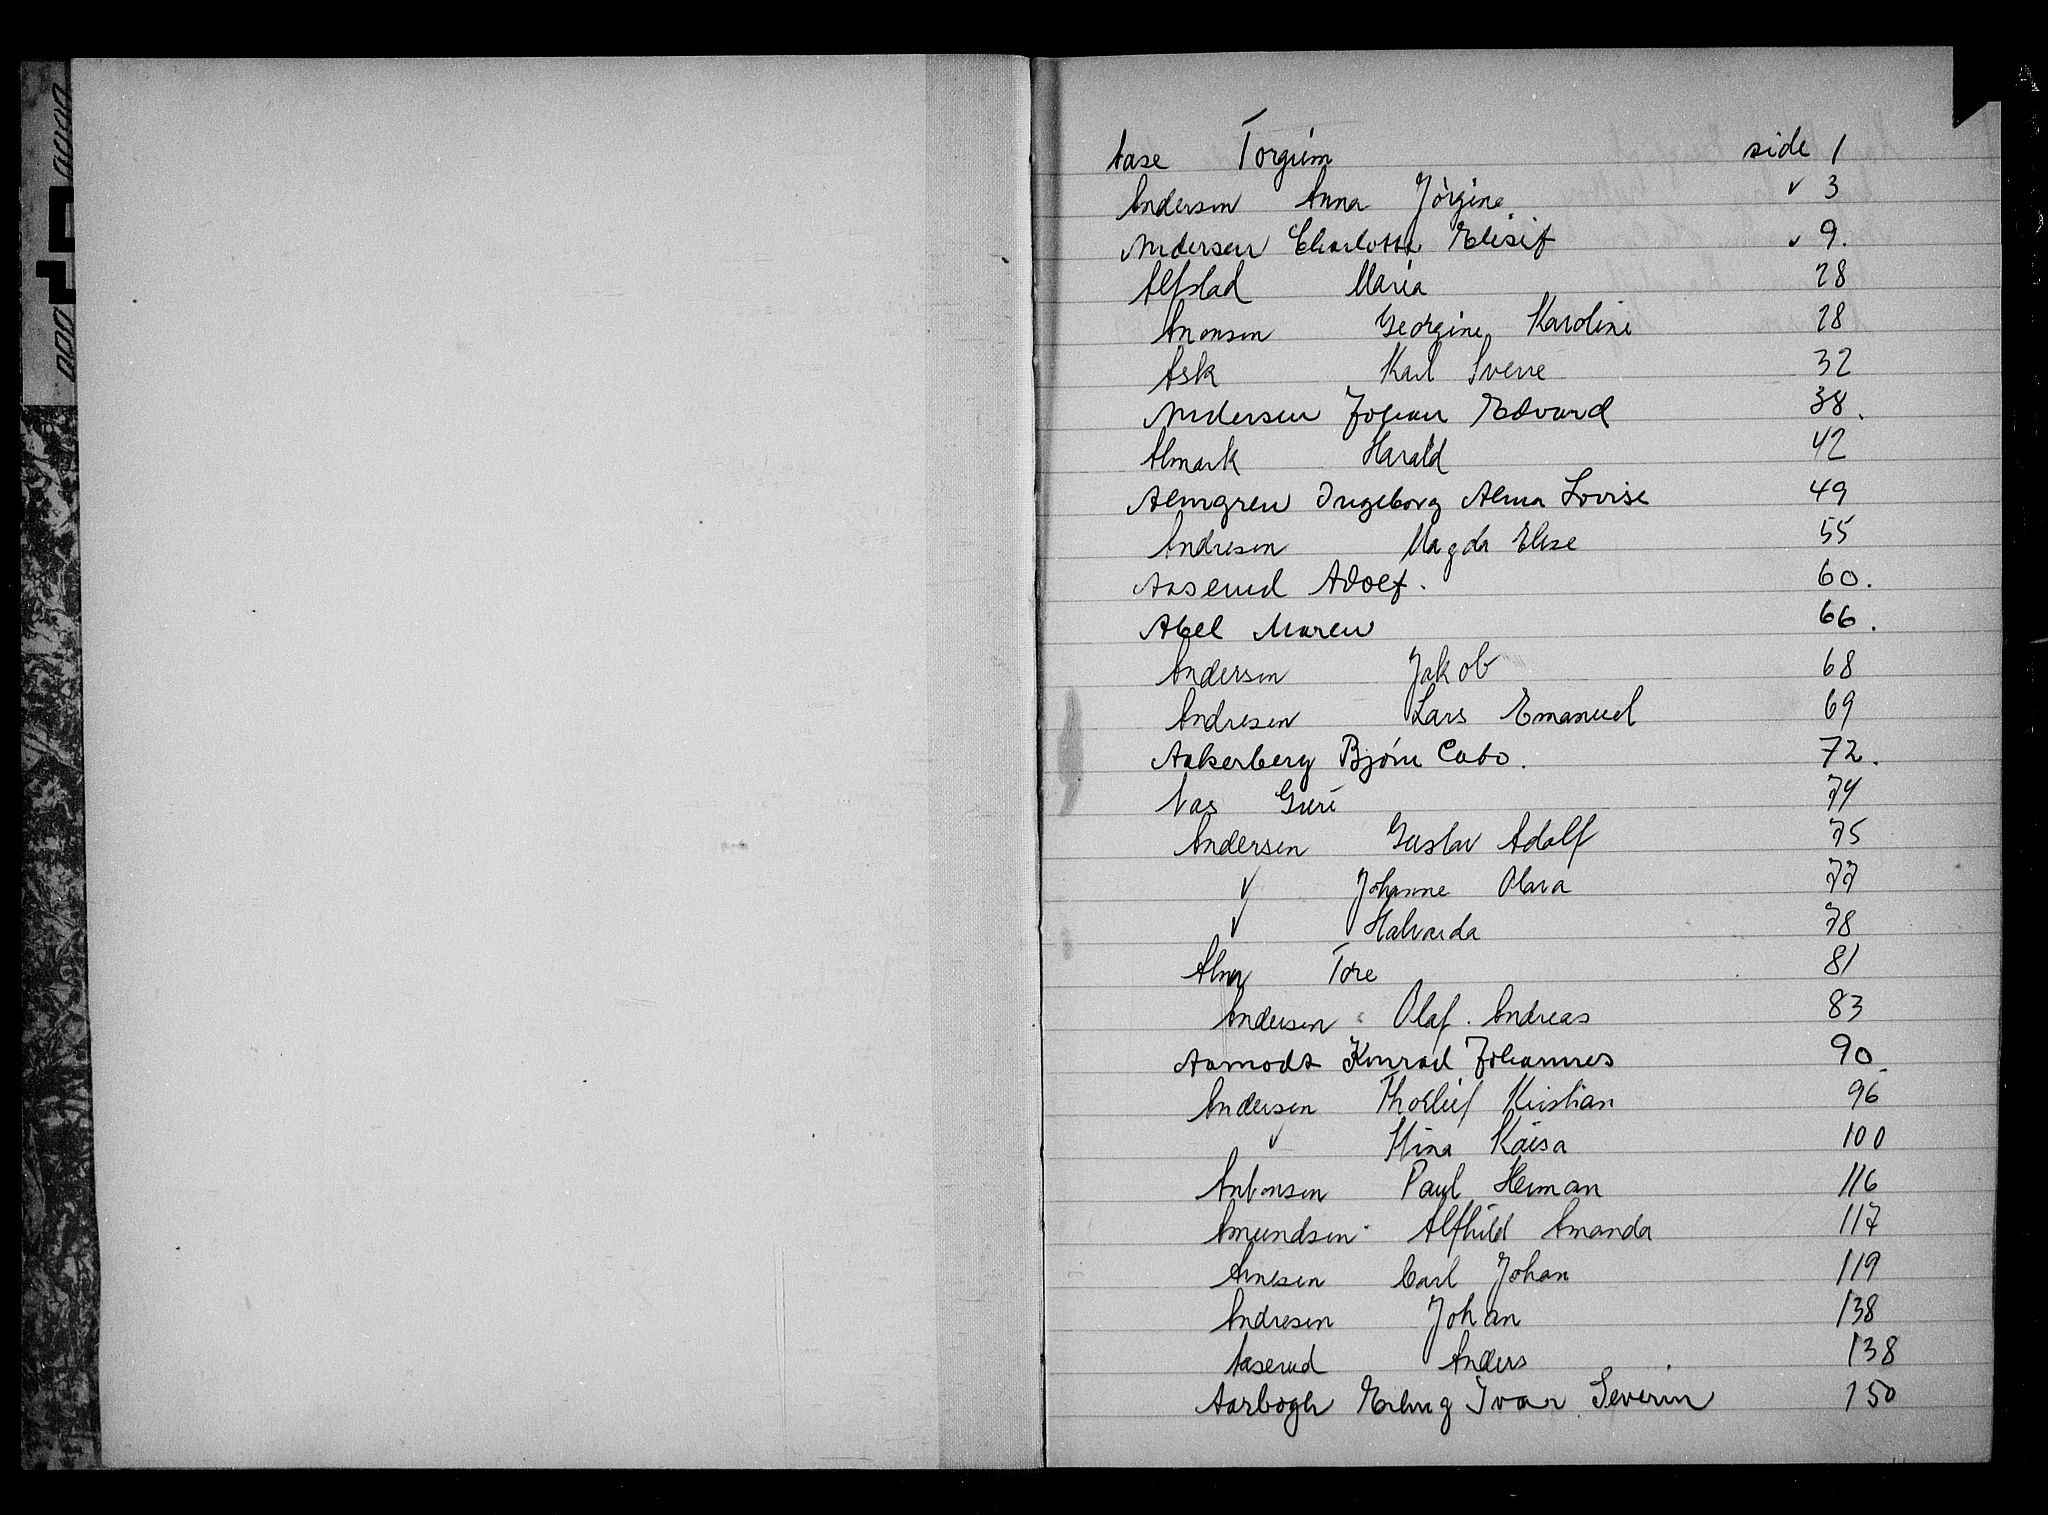 Aase Torgrim side 1
Andersen Anna Jörgine v 3
Andersen Charlotte Elisif v 9.
Alfstad Maria 28
Aronsen Georgine Karoline 28
Ask Karl Sverre 32
Andersen Johan Edvard 38.
Almark Harald 42
Almgren Ingeborg Alma Lovise 49
Andresen Magda Elise 55
Aaserud Adolf. 60.
Abel Maren 66.
Andersen Jakob 68
Andresen Lars Emanuel 69
Aakerberg Bjørn Cato. 72.
Aas Guri 74
Andersen Gustav Adolf 75
v Johanne Olava 77
v Halvarda 78
Alm Tore 81
Andersen Olaf. Andreas 83
Aamodt Konrad Johannes 90.
Andersen Thorleif Kristian 96
v Stina Kaisa 100
Antonsen Paul Herman 116
Amundsen Alfhild Amanda 117
Arnesen Carl Johan 119
Andresen Johan 138
Aaserud Anders 138
Aarbogh Erling Ivar Severin 150